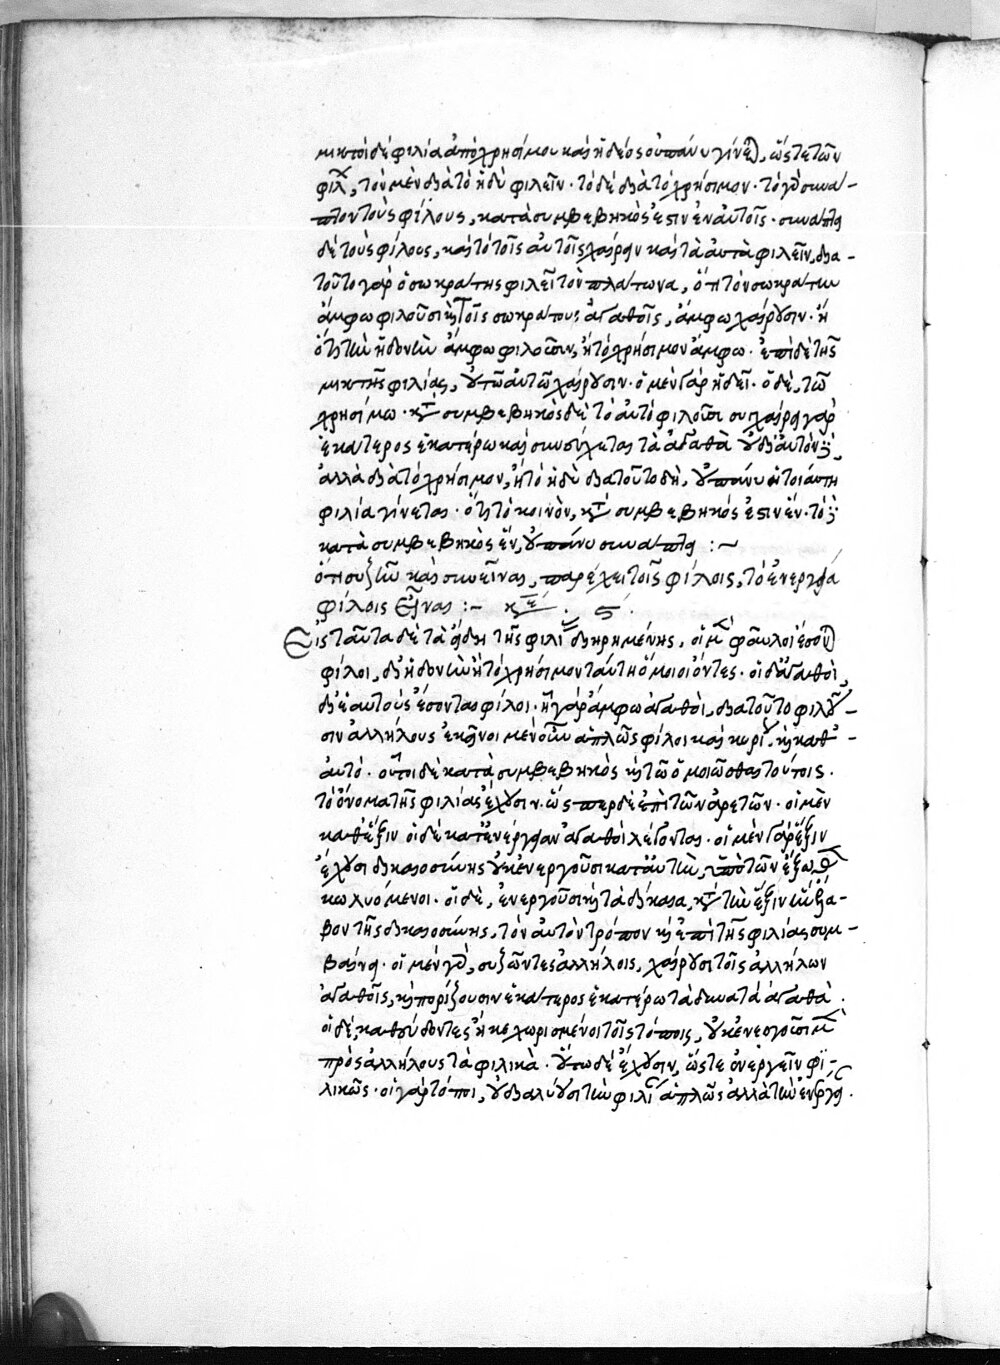 μικτὴ δὲ φιλία ἀπὸ χρησίμου καὶ ἡδέος οὐ πάνυ γίνεται, ὥστε τῶν
φίλων, τὸν μὲν διὰ τὸ ἡδὺ φιλεῖν· τὸ δὲ διὰ τὸ χρήσιμον· τὸ γὰρ συνά-
πτον τοὺς φίλους, κατὰ συμβεβηκός ἐστιν ἐν αὐτοῖς· συνάπτει
δὲ τοὺς φίλους, καὶ τὸ τοῖς αὐτοῖς χαίρειν καὶ τὰ αὐτὰ φιλεῖν, διὰ -
τοῦτο γὰρ ὁ σωκράτης φιλεῖ τὸν πλάτωνα, ὅτι τὸν σωκράτην
ἄμφω φιλοῦσι καὶ τοῖς σωκράτους ἀγαθοῖς, ἄμφω χαίρουσιν· ἢ
ὅτι τὴν ἡδονὴν ἄμφω φιλοῦσιν, ἢ τὸ χρήσιμον ἄμφω· ἐπὶ δὲ τῆς
μικτῆς φιλίας, οὐ τῷ αὐτῷ χαίρουσιν· ὁ μὲν γὰρ ἡδεῖ· ὁ δὲ, τῷ
χρησίμω· κατὰ συμβεβηκὸς δὲ τὸ αὐτὸ φιλοῦσι συγχαίρει γὰρ
ἑκάτερος ἑκατέρω καὶ συνεύχεται τὰ ἀγαθὰ οὐ δι' αὐτὸν,
ἀλλὰ διὰ τὸ χρήσιμον, ἢ τὸ ἡδὺ διὰ τοῦτο δὴ, οὐ πάνυ ἡ τοιαύτη
φιλία γίνεται· ὅτι τὸ κοινὸν, κατὰ συμβεβηκός ἐστιν ἕν· τὸ δὲ
κατὰ συμβεβηκὸς ἕν, οὐ πάνυ συνάπτει :~
ὅτι συζῆν καὶ συνεῖναι, παρέχει τοῖς φίλοις, τὸ ἐνεργείᾳ
φίλοις εἶναι :- κε . ϛ :
Εἰς ταῦτα δὲ τὰ εἴδη τῆς φιλίας διηρημένης, οἱ μὲν φαῦλοι ἔσονται
φίλοι, δι' ἡδονὴν ἢ τὸ χρήσιμον ταύτη ὅμοιοι ὄντες· οἱ δ' ἀγαθοὶ,
δι' ἑαυτοὺς ἔσονται φίλοι· ᾗ γὰρ ἄμφω ἀγαθοὶ, διὰ τοῦτο φιλοῦ-
σιν ἀλλήλους ἐκεῖνοι μὲν οὖν ἁπλῶς φίλοι καὶ κυρίως καὶ καθ' -
αὑτό· οὗτοι δὲ κατὰ συμβεβηκὸς καὶ τῷ ὁμοιῶσθαι τούτοις.
τὸ ὄνομα τῆς φιλίας ἔχουσιν. ὥσπερ δὲ ἐπὶ τῶν ἀρετῶν· οἱ μὲν
καθ' ἕξιν οἱ δὲ κατ' ἐνέργειαν ἀγαθοὶ λέγονται· οἱ μὲν γὰρ ἕξιν
ἔχουσι δικαιοσύνης οὐκ ἐνεργοῦσι κατ' αὐτὴν, ὑπὸ τῶν ἔξωθεν
κωλυόμενοι· οἱ δὲ, ἐνεργοῦσι καὶ τὰ δίκαια, κατὰ τὴν ἕξιν ἣν ἔλα-
βον τῆς δικαιοσύνης, τὸν αὐτὸν τρόπον καὶ ἐπὶ τῆς φιλίας συμ-
βαίνει· οἱ μὲν γὰρ, συζῶντες ἀλλήλοις, χαίρουσι τοῖς ἀλλήλων
ἀγαθοῖς, καὶ πορίζουσιν ἑκάτερος ἑκατέρω τὰ δυνατὰ ἀγαθὰ.
οἱ δὲ, καθεύδοντες ἢ κεχωρισμένοι τοῖς τόποις, οὐκ ἐνεργοῦσι μὲν
πρὸς ἀλλήλους τὰ φιλικὰ· οὕτω δὲ ἔχουσιν, ὥστε ἐνεργεῖν φι-
λικῶς· οἱ γὰρ τόποι, οὐ διαλύουσι τὴν φιλίαν ἁπλῶς ἀλλὰ τὴν ἐνέργειαν.